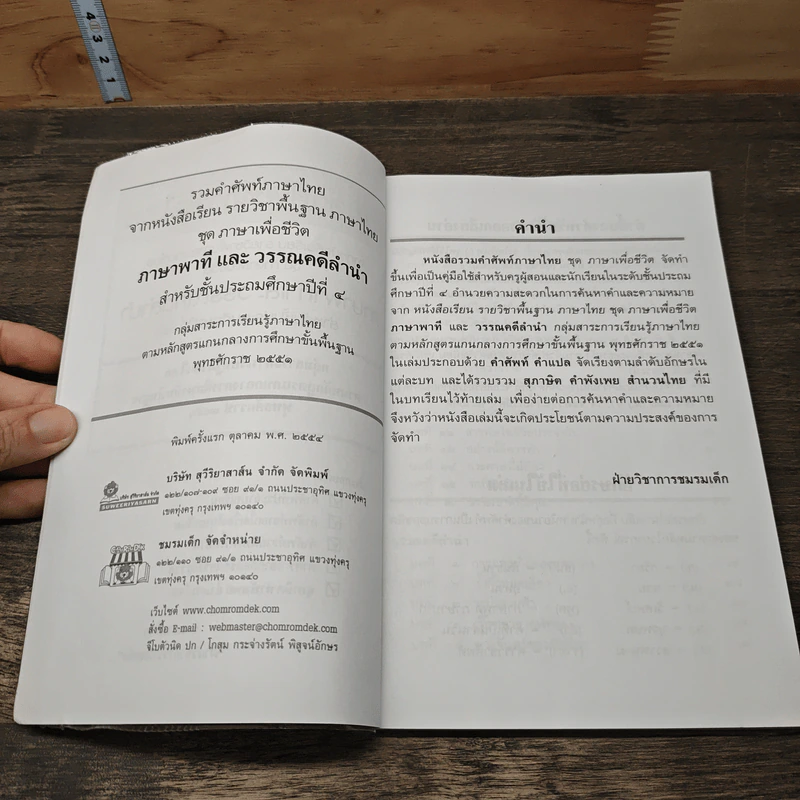 4
3
2
1
รวมคำศัพท์ภาษาไทย
จากหนังสือเรียน รายวิชาพื้นฐาน ภาษาไทย
ชุด ภาษาเพื่อชีวิต
ภาษาพาที และ วรรณคดีลำนำ
สำหรับชั้นประถมศึกษาปีที่ ๔
กลุ่มสาระการเรียนรู้ภาษาไทย
ตามหลักสูตรแกนกลางการศึกษาขั้นพื้นฐาน
พุทธศักราช ๒๕๕๑
พิมพ์ครั้งแรก ตุลาคม พ.ศ. ๒๕๕๔
บริษัท สุวีริยาสาส์น จำกัด จัดพิมพ์
๑๒๒/๑๐๗-๑๐๙ ซอย ๙๑/๑ ถนนประชาอุทิศ แขวงทุ่งครุ
เขตทุ่งครุ กรุงเทพฯ ๑๐๑๔๐
SUWEERIYASARN
ชมรมเด็ก จัดจำหน่าย
๑๒๒/๑๑๐ ซอย ๙๑/๑ ถนนประชาอุทิศ แขวงทุ่งครุ
เขตทุ่งครุ กรุงเทพฯ ๑๐๑๔๐
เว็บไซต์ www.chomromdek.com
สั่งซื้อ E-mail : webmaster@chomromdek.com
จีโบตัวนิด ปก / โกสุม กระจ่างรัตน์ พิสูจน์อักษร
คำนำ
หนังสือรวมคำศัพท์ภาษาไทย ชุด ภาษาเพื่อชีวิต จัดทำ
ขึ้นเพื่อเป็นคู่มือใช้สำหรับครูผู้สอนและนักเรียนในระดับชั้นประถม
ศึกษาปีที่ ๔ อำนวยความสะดวกในการค้นหาคำและความหมาย
จาก หนังสือเรียน รายวิชาพื้นฐาน ภาษาไทย ชุด ภาษาเพื่อชีวิต
ภาษาพาที และ วรรณคดีลำนำ กลุ่มสาระการเรียนรู้ภาษาไทย
ตามหลักสูตรแกนกลางการศึกษาขั้นพื้นฐาน พุทธศักราช ๒๕๕๑
ในเล่มประกอบด้วย คำศัพท์ คำแปล จัดเรียงตามลำดับอักษรใน
แต่ละบท และได้รวบรวม สุภาษิต คำพังเพย สำนวนไทย ที่มี
ในบทเรียนไว้ท้ายเล่ม เพื่อง่ายต่อการค้นหาคำและความหมาย
จึงหวังว่าหนังสือเล่มนี้จะเกิดประโยชน์ตามความประสงค์ของการ
จัดทำ
ฝ่ายวิชาการชมรมเด็ก